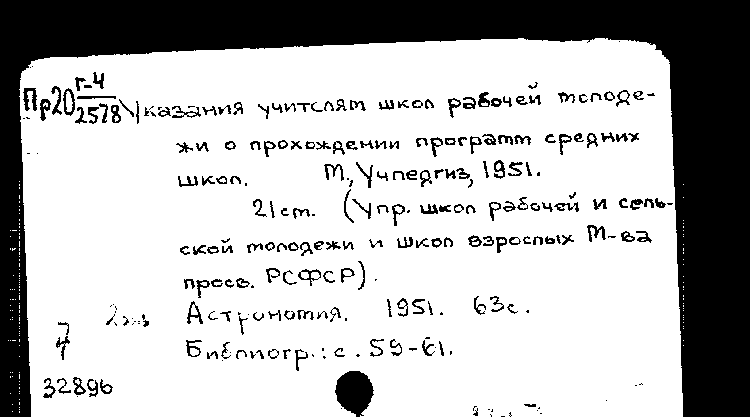 Пр20 г-4/2578 Указания учителям школ рабочей молоде-
жи о прохождении программ средних
школ. М., Учпедгиз, 1951.
21 ст. (Упр. школ рабочей и сель-
ской молодежи и школ взрослых М-ва
просв. РСФСР).
2 экз Астрономия. 1951. 63 с.
Библиогр.: с. 59-61.
32896